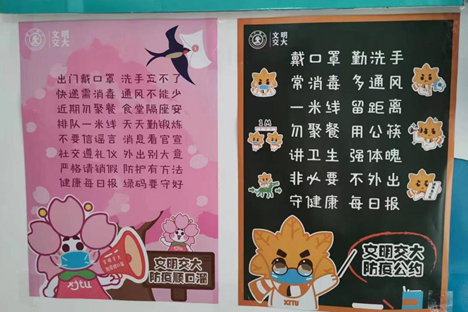 文明
交大
出门戴口罩 洗手忘不了
快递需消毒 通风不能少
近期勿聚餐 食堂隔座安
排队一米线 天天勤锻炼
不要信谣言 消息看官宣
社交遵礼仪 外出别大意
严格请销假 防护有方法
健康每日报 绿码要守好
xjtu
文明交大
防疫顺口溜
文明
交大
戴口罩 勤洗手
常消毒 多通风
一米线 留距离
勿聚餐 用公筷
讲卫生 强体魄
非必要 不外出
守健康 每日报
1M
XJTU
文明交大
防疫公约